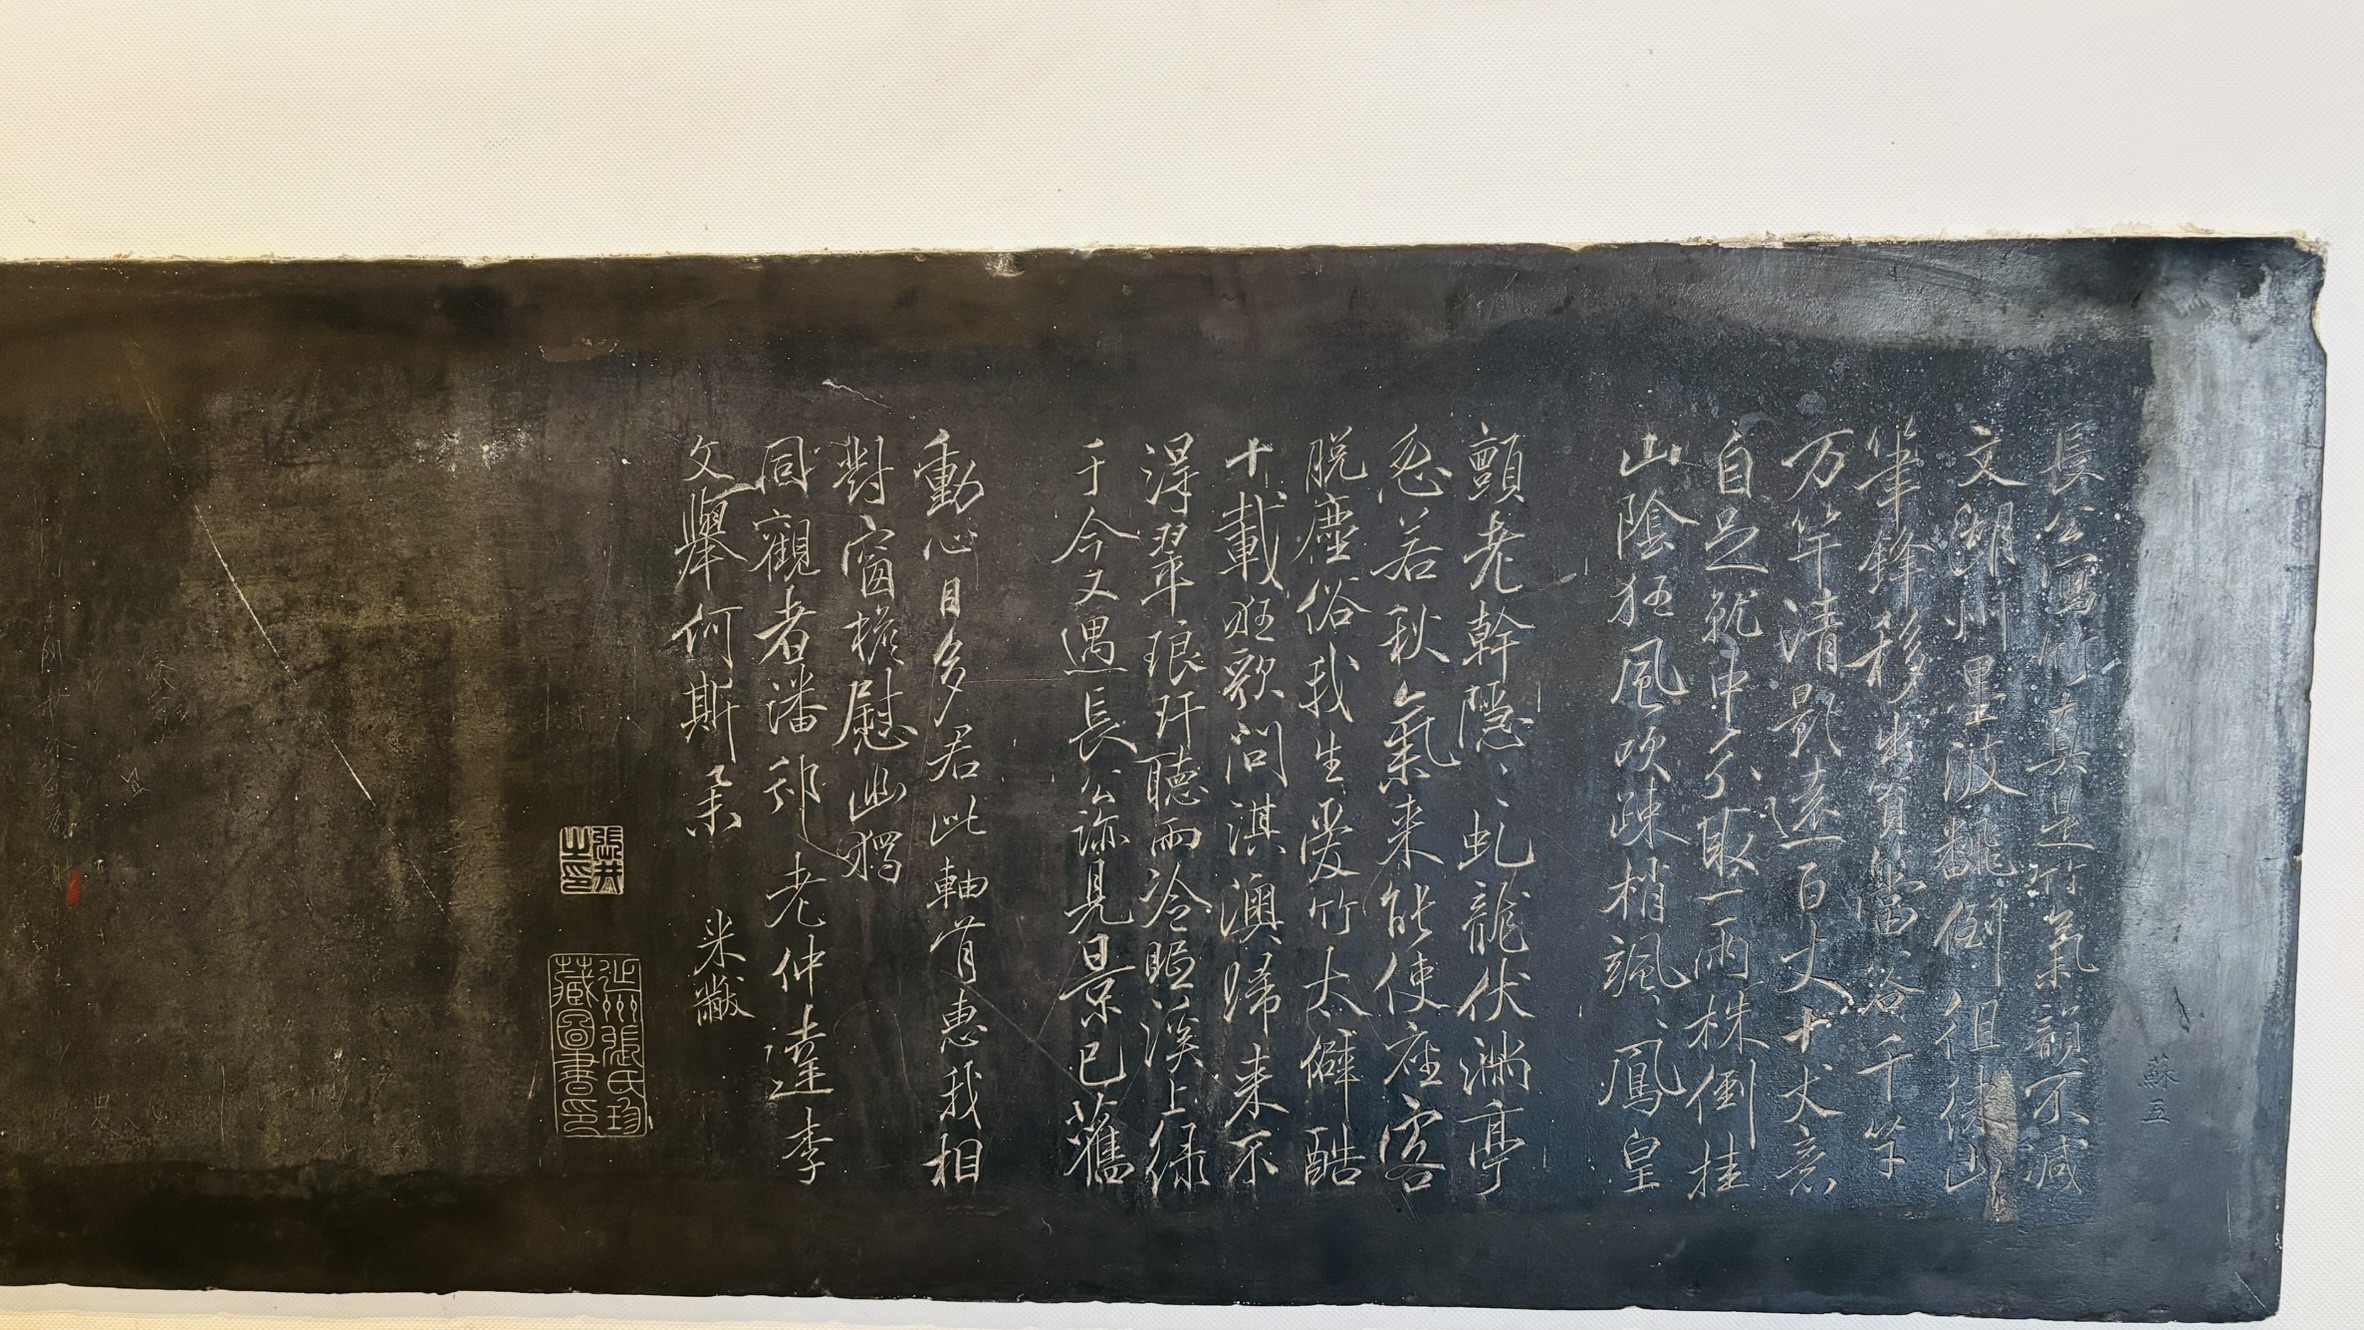 蘇五
長公寫竹真是竹氣韻不減
文湖州墨波飜倒徂徠山
筆鋒移出篔簹谷千竿
万竿清影遠百丈十丈意
自足就中分取一兩株倒挂
山陰狂風吹疎梢颯〻鳳皇
顫老幹隱〻虬龍伏滿亭
忽若秋氣來能使座客
脫塵俗我生愛竹太僻酷
十載狂歌問淇澳歸来不
得翠琅玕聽雨冷眠溪上綠
于今又遇長公跡見景已舊
動心目多君此軸肯惠我相
對窗樆慰幽獨
同觀者潘邠老仲達李
文舉何斯舉 米黻
張井之印
延州張氏珍藏圖書印